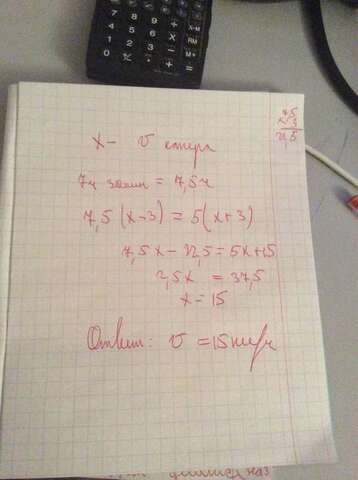 7 4 1 0
8 5 2
9 6 3
X-M
RM
M+
÷ × − + =
7,5
3
22,5
x - v катера
7ч 30мин = 7,5ч
7,5(x-3) = 5(x+3)
7,5x - 22,5 = 5x+15
2,5x = 37,5
x = 15
Ответ: v = 15км/ч